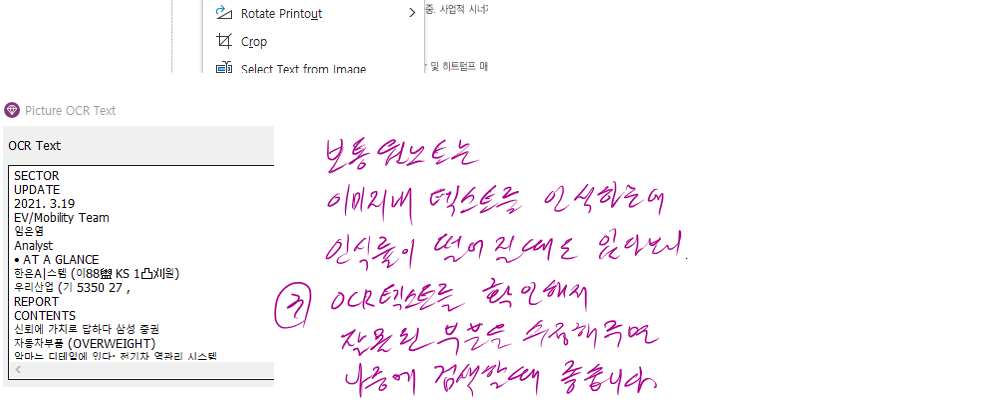 Rotate Printout
중. 사업적 시너지
Crop
및 히트펌프 매
Select Text from Image
Picture OCR Text
OCR Text
SECTOR
UPDATE
2021. 3.19
EV/Mobility Team
임은영
Analyst
• AT A GLANCE
한온A|스템 (이88 KS 1凸刈원)
우리산업 (기 5350 27 ,
REPORT
CONTENTS
신뢰에 가치로 답하다 삼성 증권
자동차부품 (OVERWEIGHT)
악마느 디테일에 있다: 전기차 열관리 시스템
보통 원노트는
이미지내 텍스트를 인식하는데
인식률이 떨어질때도 있다보니.
③ OCR텍스트를 확인해서
잘못된 부분을 수정해주면
나중에 검색할때 좋습니다.